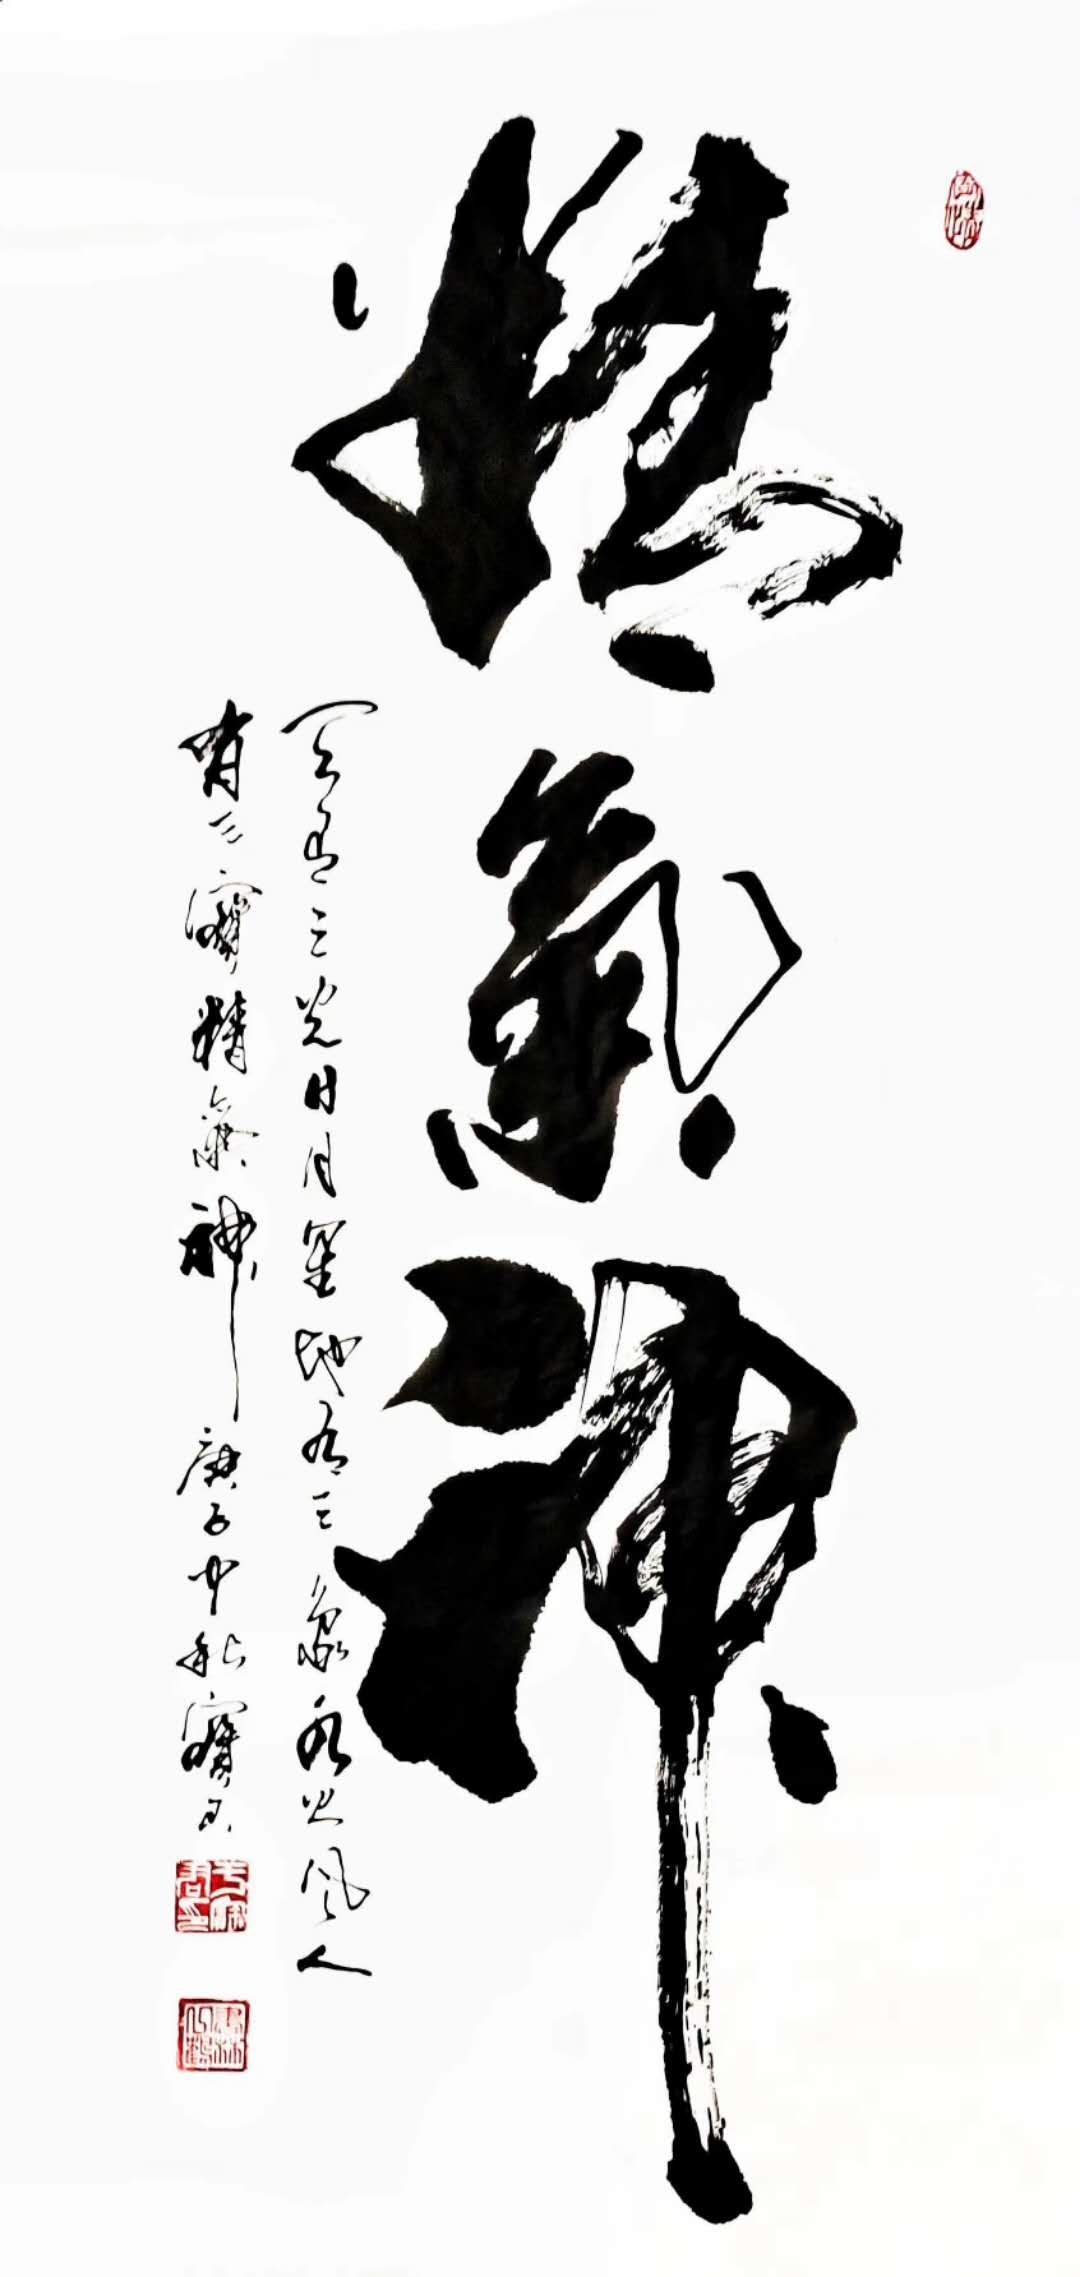 精氣神
天有三光日月星地有三象水火風人
有三寶精氣神庚子中秋寶君